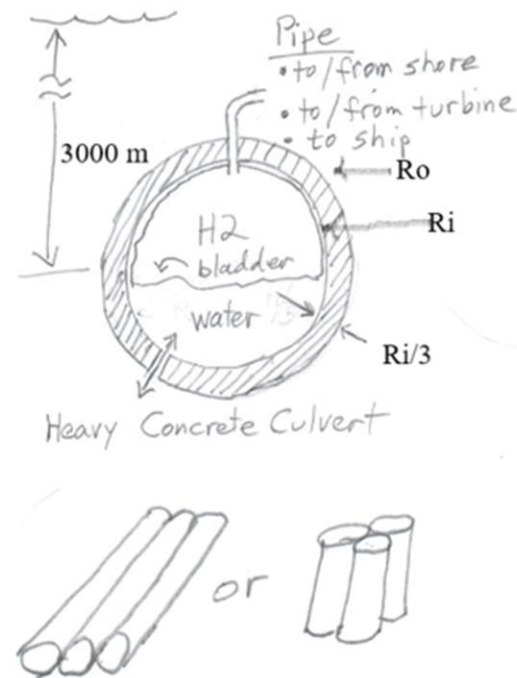 Pipe
• to/from shore
• to/from turbine
• to ship
3000 m
Ro
Ri
H2
bladder
water
Ri/3
Heavy Concrete Culvert
or